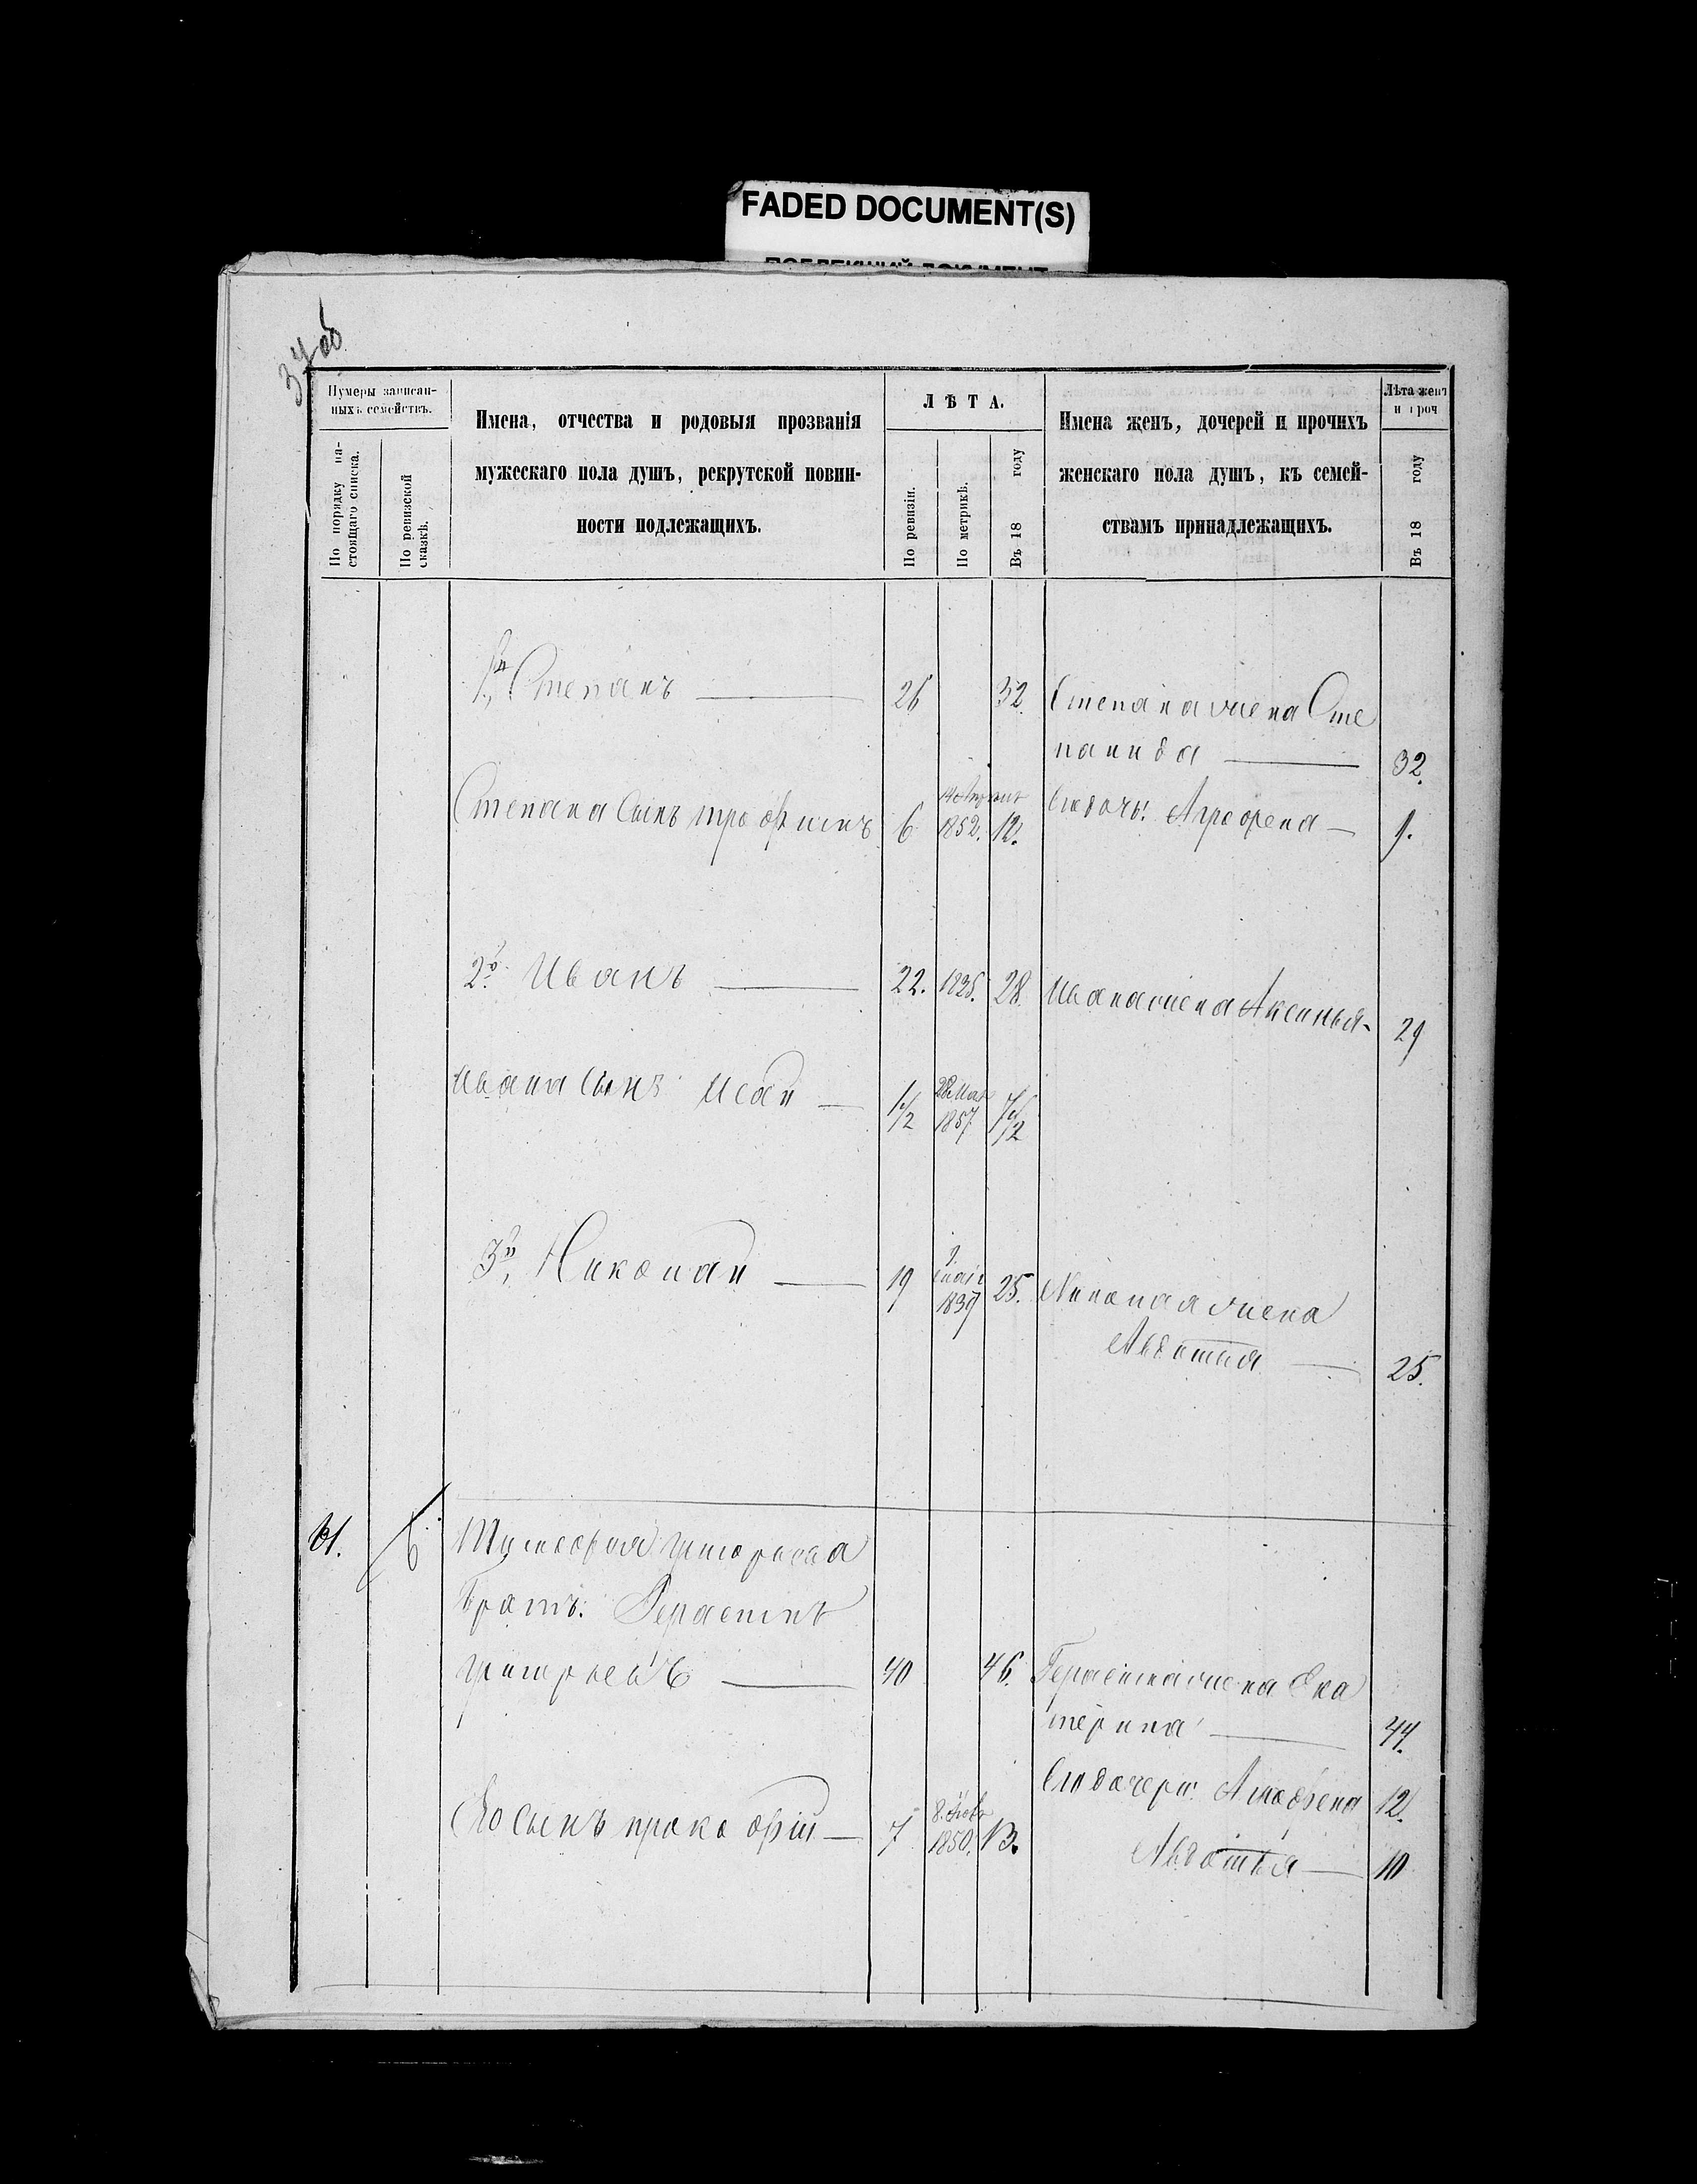 FADED DOCUMENT(S)
37об
Нумеры записан-
ныхъ семействъ.
По порядку на-
стоящаго списка.
По ревизской
сказкѣ.
Имена, отчества и родовыя прозванія
мужескаго пола душъ, рекрутской повин-
ности подлежащихъ.
ЛѢТА.
По ревизіи.
По метрикѣ.
Въ 18 году
Имена женъ, дочерей и прочихъ
женскаго пола душъ, къ семей-
ствамъ принадлежащихъ.
Лѣта женъ
и проч
Въ 18 году
1й, Степанъ — 26 32. Степана жена Сте
панида — 32.
Степана Сынъ трофимъ 6 1852. 12. Его дочь: Агрофена — 1.
2й. Иванъ — 22. 1835. 28. Ивана жена Аксинья - 29
Ивана Сынъ Исай — 1/2 1857
3й, Николай — 19 9 мая 1839 25. Николая жена
Авдотья — 25.
61. 6. Тимофея григорьева
братъ: Герасимъ
григорьевъ — 40 46. Герасима жена Ека
терина — 44.
Его дочери: Агрофена 12.
Его Сынъ прокофій — 7 1850. 13.
Авдотья — 10